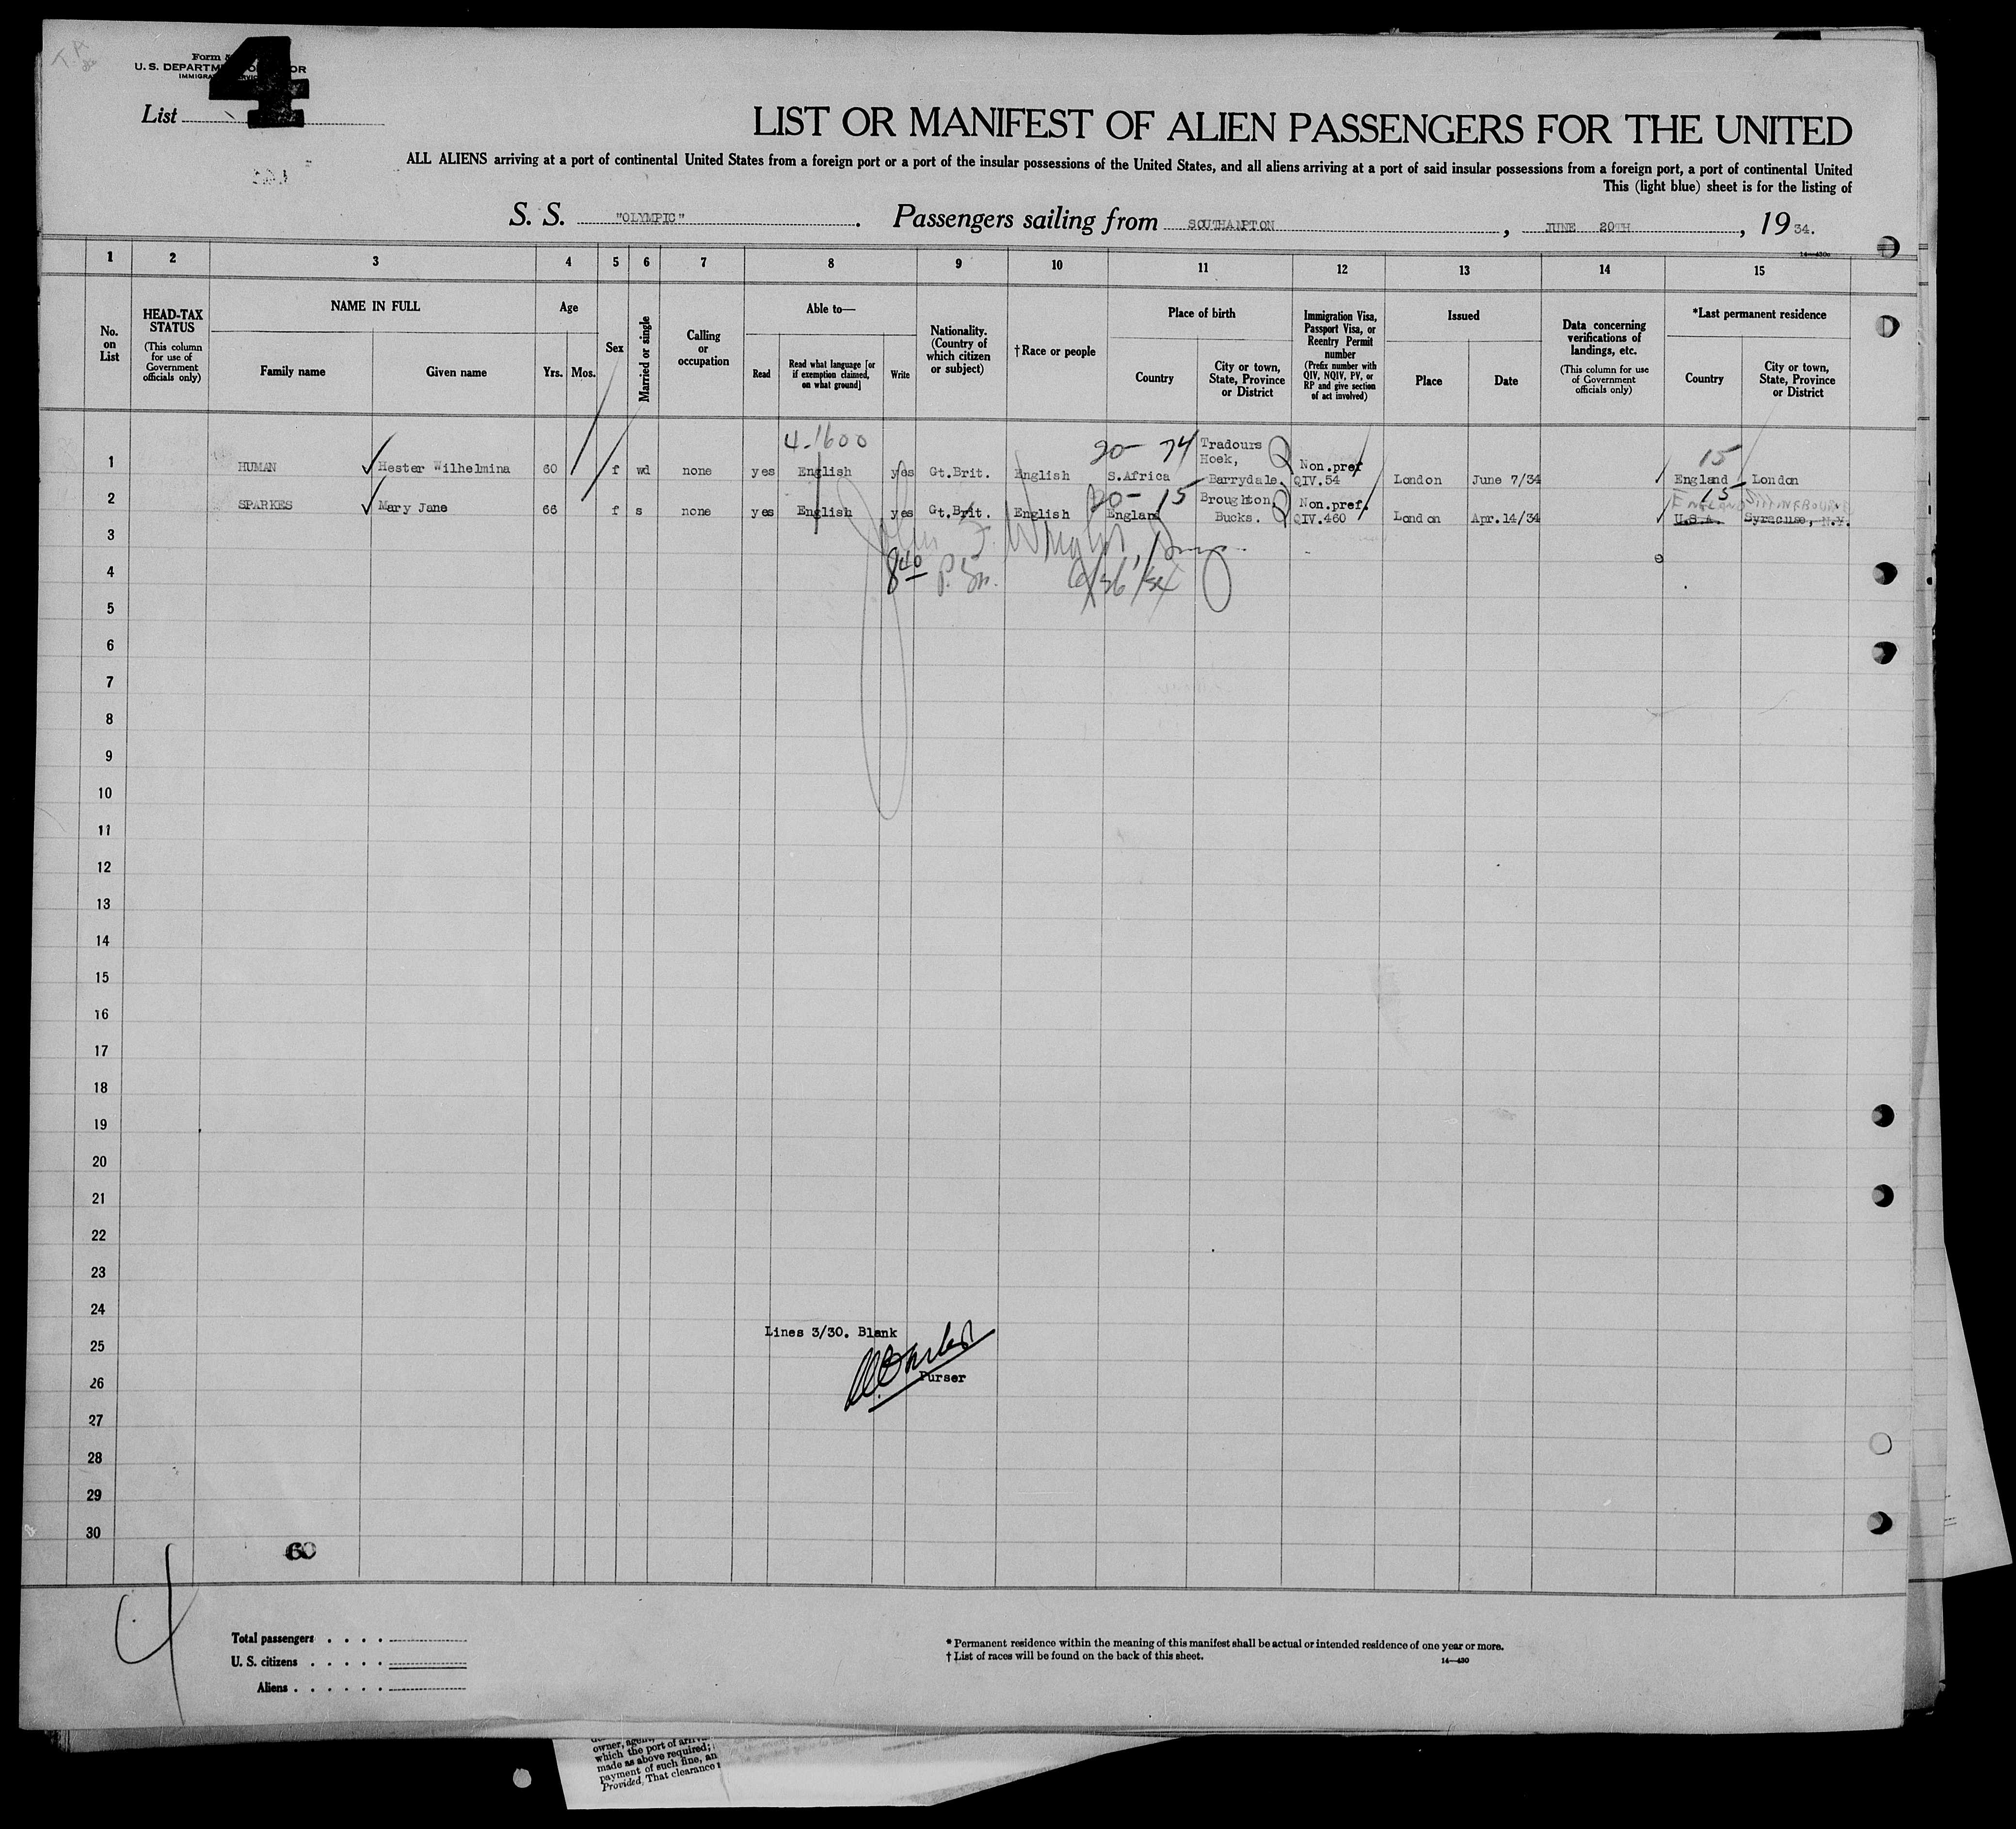 Form
U. S. DEPARTM OR
IMMIGRA
4
List
LIST OR MANIFEST OF ALIEN PASSENGERS FOR THE UNITED
ALL ALIENS arriving at a port of continental United States from a foreign port or a port of the insular possessions of the United States, and all aliens arriving at a port of said insular possessions from a foreign port, a port of continental United
This (light blue) sheet is for the listing of
S. S. "OLYMPIC". Passengers sailing from SOUTHAMPTON, JUNE 20TH, 1934.
1 2 3 4 5 6 7 8 9 10 11 12 13 14 15
No. on List
HEAD-TAX STATUS
(This column for use of Government officials only)
NAME IN FULL
Family name
Given name
Age
Yrs. Mos.
Sex
Married or single
Calling or occupation
Able to—
Read
Read what language [or if exemption claimed, on what ground]
Write
Nationality. (Country of which citizen or subject)
†Race or people
Place of birth
Country
City or town, State, Province or District
Immigration Visa, Passport Visa, or Reentry Permit number
(Prefix number with QIV, NQIV, PV, or RP and give section of act involved)
Issued
Place
Date
Data concerning verifications of landings, etc.
(This column for use of Government officials only)
*Last permanent residence
Country
City or town, State, Province or District
4-1600
20- 74
15
1 HUMAN Hester Wilhelmina 60 f wd none yes English yes Gt.Brit. English S.Africa Tradours Hoek, Barrydale. Non.pref QIV.54 London June 7/34 England London
20- 15
15
ENGLAND SITTINGBOURNE
2 SPARKES Mary Jane 66 f s none yes English yes Gt.Brit. English England Broughton, Bucks. Non.pref. QIV.460 London Apr.14/34 U.S.A. Syracuse, N.Y.
John F. Wright
3
8 40 P.M. 6/26/34
4
5
6
7
8
9
10
11
12
13
14
15
16
17
18
19
20
21
22
23
24
Lines 3/30. Blank
25
26
Purser
27
28
29
30
60
4
Total passengers
U. S. citizens
Aliens
* Permanent residence within the meaning of this manifest shall be actual or intended residence of one year or more.
† List of races will be found on the back of this sheet.
14—430
owner, agent,
which the port of arriv
made as above required;
payment of such fine, an
Provided, That clearance